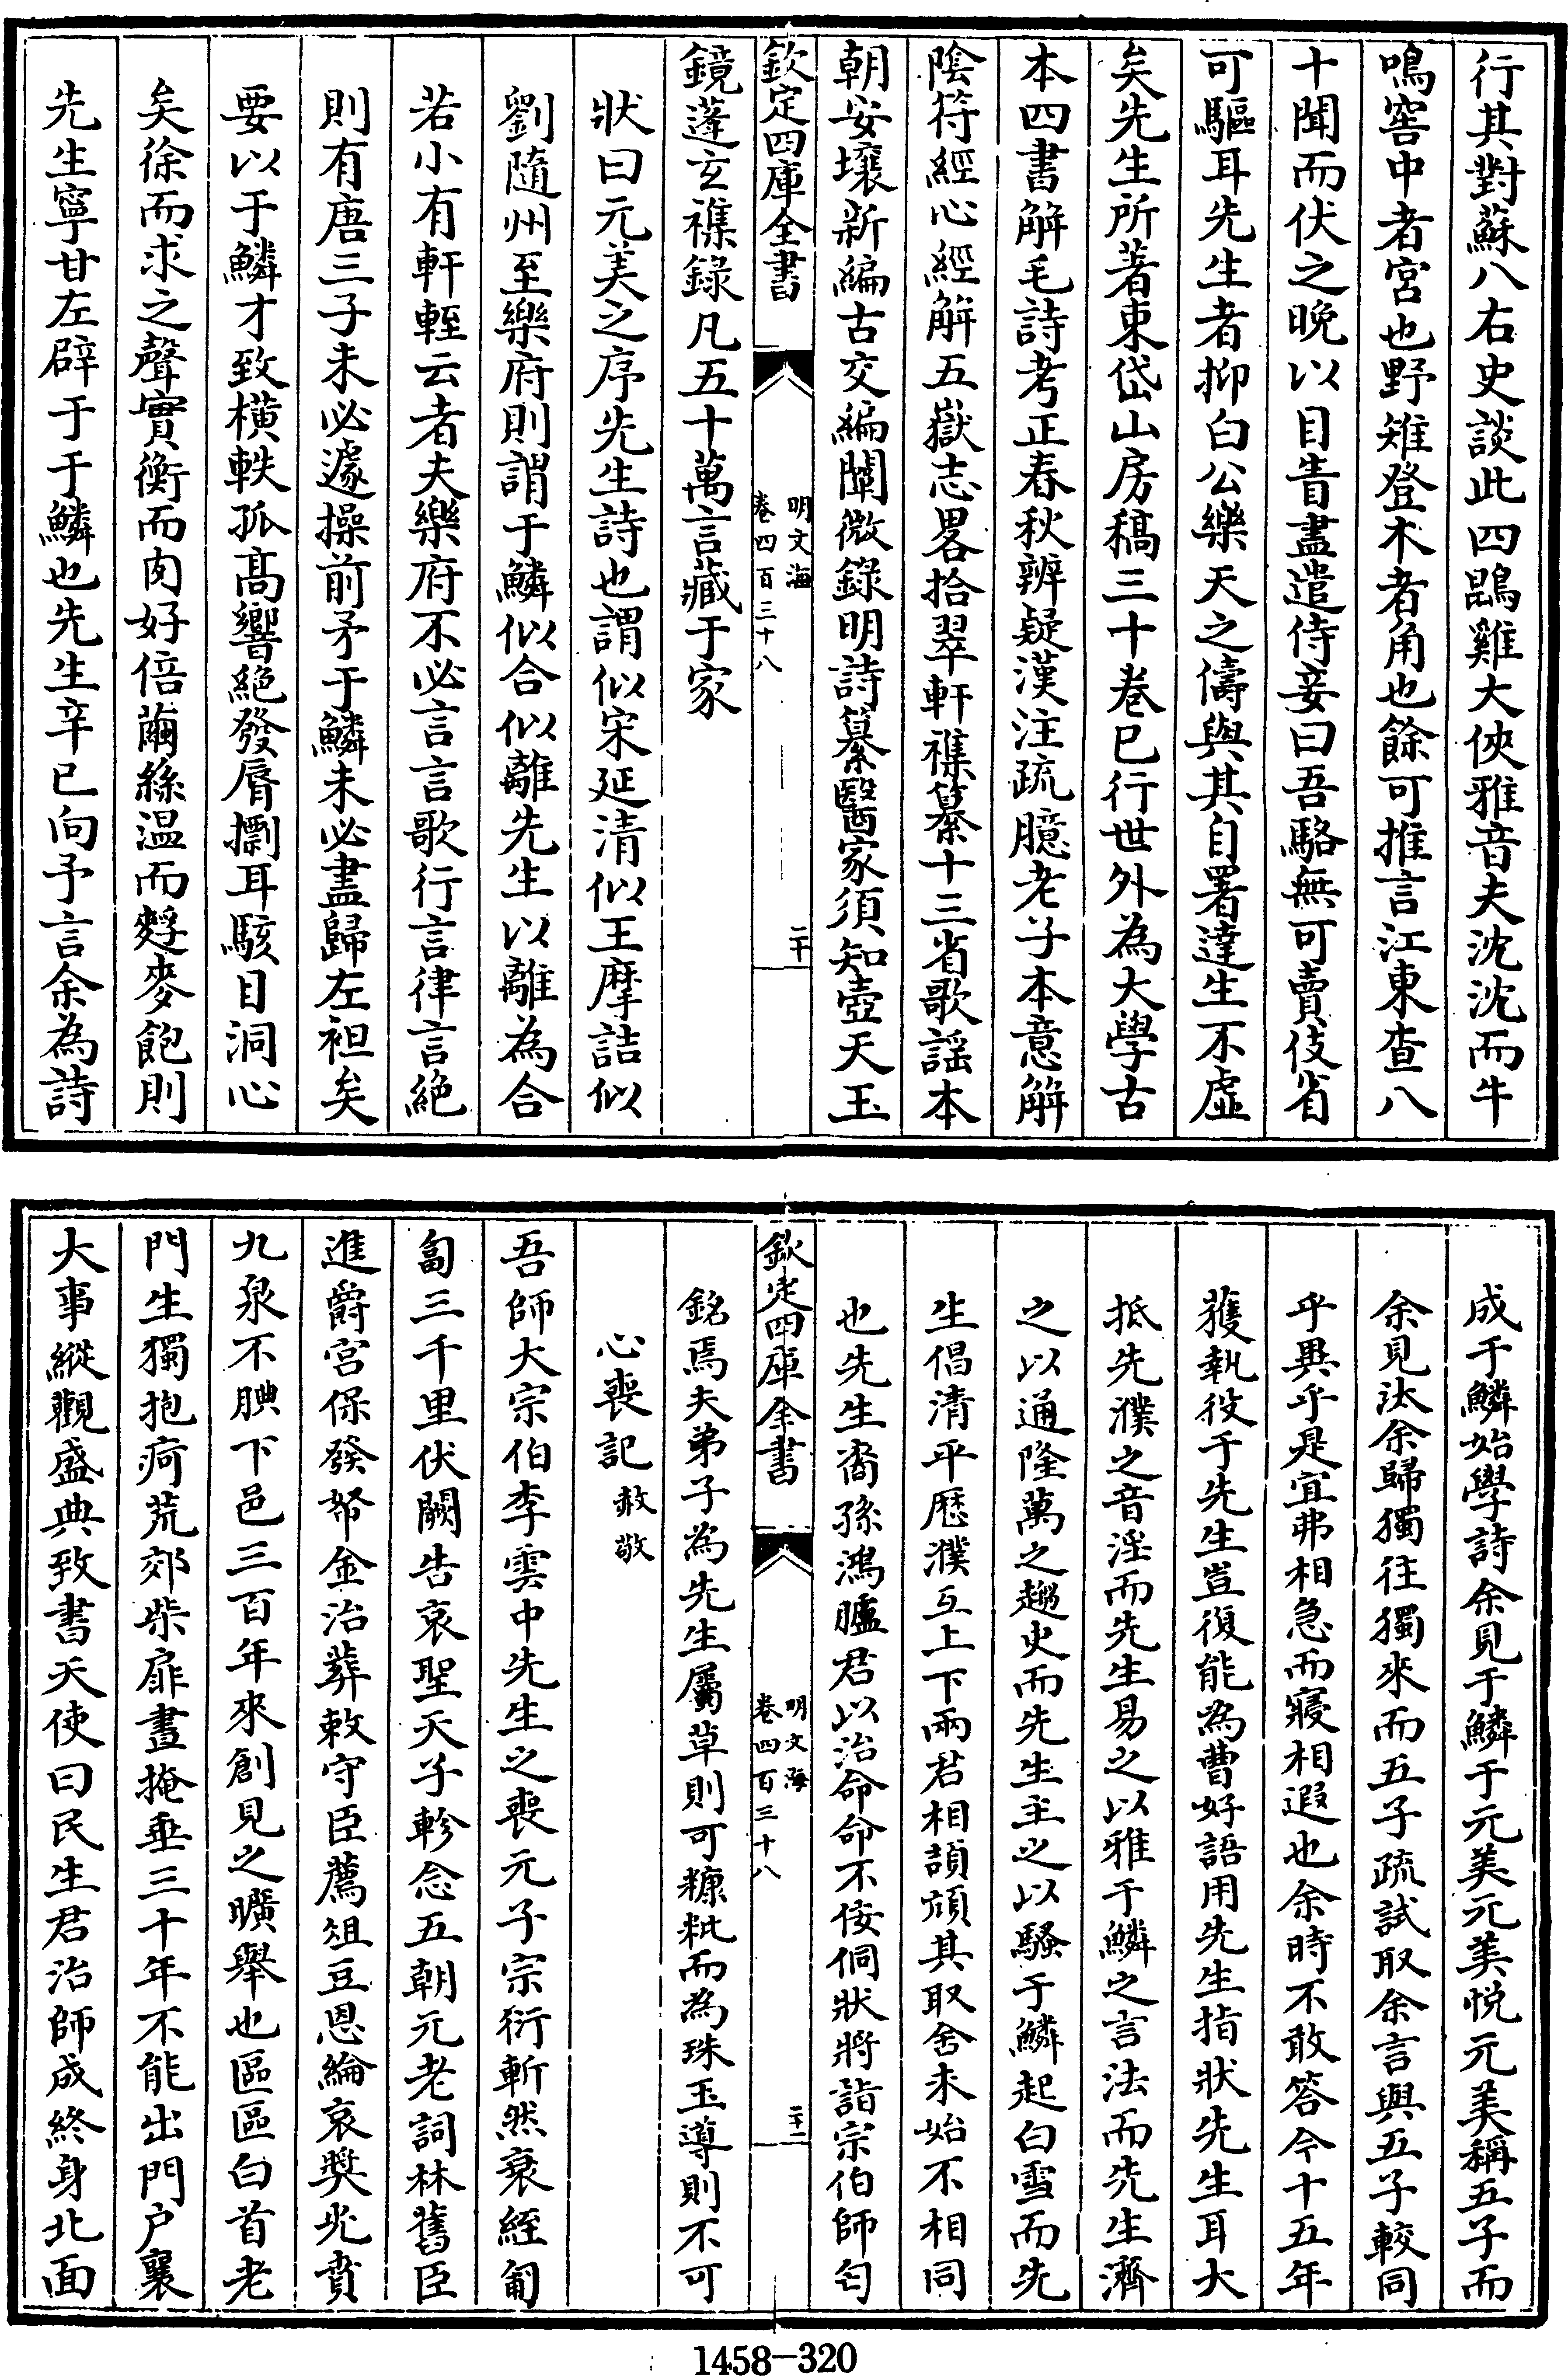 行其對蘇八右史談此四鵾雞大俠雅音夫沈沈而牛
鳴窖中者宮也野雉登木者角也餘可推言江東查八
十聞而伏之晚以目眚盡遣侍妾曰吾駱無可賣伎省
可驅耳先生者抑白公樂天之儔與其自署達生不虛
矣先生所著東岱山房稿三十卷已行世外為大學古
本四書解毛詩考正春秋辨疑漢注疏臆老子本意解
陰符經心經解五嶽志畧拾翠軒襍纂十三省歌謡本
朝安壤新編古交編闡微錄明詩纂醫家須知壺天玉
欽定四庫全書
明文海
卷四百三十八
二十
鏡蓬玄襍錄凡五十萬言藏于家
狀曰元美之序先生詩也謂似宋延清似王摩詰似
劉隨州至樂府則謂于鱗似合似離先生以離為合
若小有軒輊云者夫樂府不必言言歌行言律言絕
則有唐三子未必遽操前矛于鱗未必盡歸左袒矣
要以于鱗才致橫軼孤高響絕發脣摽耳駭目洞心
矣徐而求之聲實衡而肉好倍繭絲温而麰麥飽則
先生寧甘左辟于于鱗也先生辛巳向予言余為詩
成于鱗始學詩余見于鱗于元美元美悅元美稱五子而
余見汰余歸獨往獨來而五子疏試取余言與五子較同
乎異乎是宜弗相急而寢相遐也余時不敢答今十五年
蒦執役于先生豈復能為曹好語用先生指狀先生耳大
抵先濮之音淫而先生易之以雅于鱗之言法而先生濟
之以通隆萬之趨史而先生主之以騷于鱗起白雪而先
生倡清平歷濮互上下兩君相頡頏其取舍未始不相同
也先生裔孫鴻臚君以治命命不佞侗狀將詣宗伯師匄
欽定四庫全書
明文海
卷四百三十八
二十一
銘焉夫弟子為先生屬草則可糠粃而為珠玉導則不可
心喪記敖敬
吾師大宗伯李雲中先生之喪元子宗衍斬然衰絰匍
匐三千里伏闕告哀聖天子軫念五朝元老詞林舊臣
進爵宮保發帑金治葬敕守臣薦俎豆恩綸哀奬光賁
九泉不腆下邑三百年來創見之曠舉也區區白首老
門生獨抱痾荒郊柴扉晝掩垂三十年不能出門户襄
大事縱觀盛典致書天使曰民生君治師成終身北面
1458-320